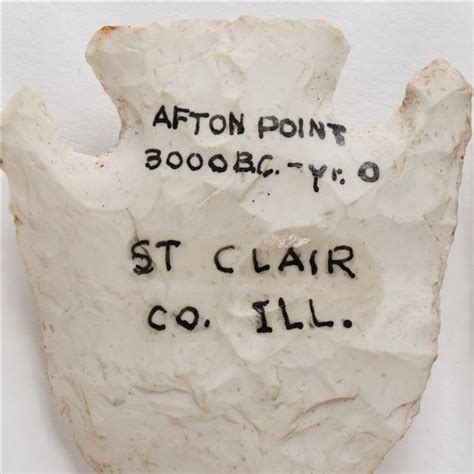 AFTON POINT
3000 B.C. - yr. 0
ST CLAIR
CO. ILL.